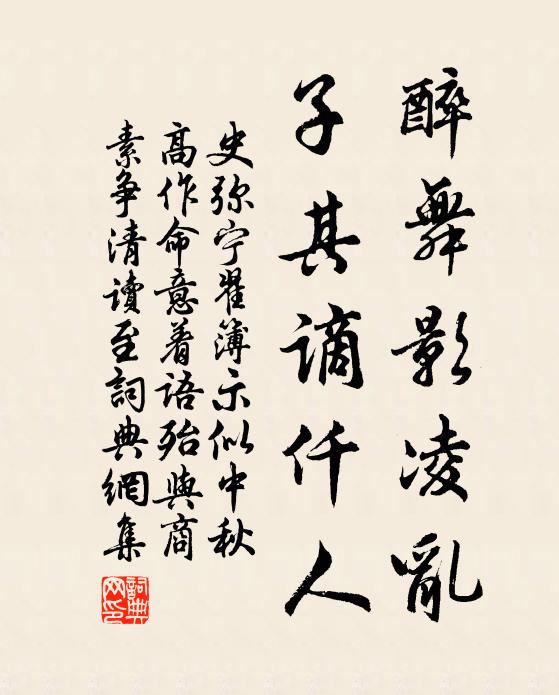 醉舞影凌亂
子其謫仟人
史弥宁翟簿示似中秋
高作命意着语殆與商
素争清讀至詞典網集
詞典网印